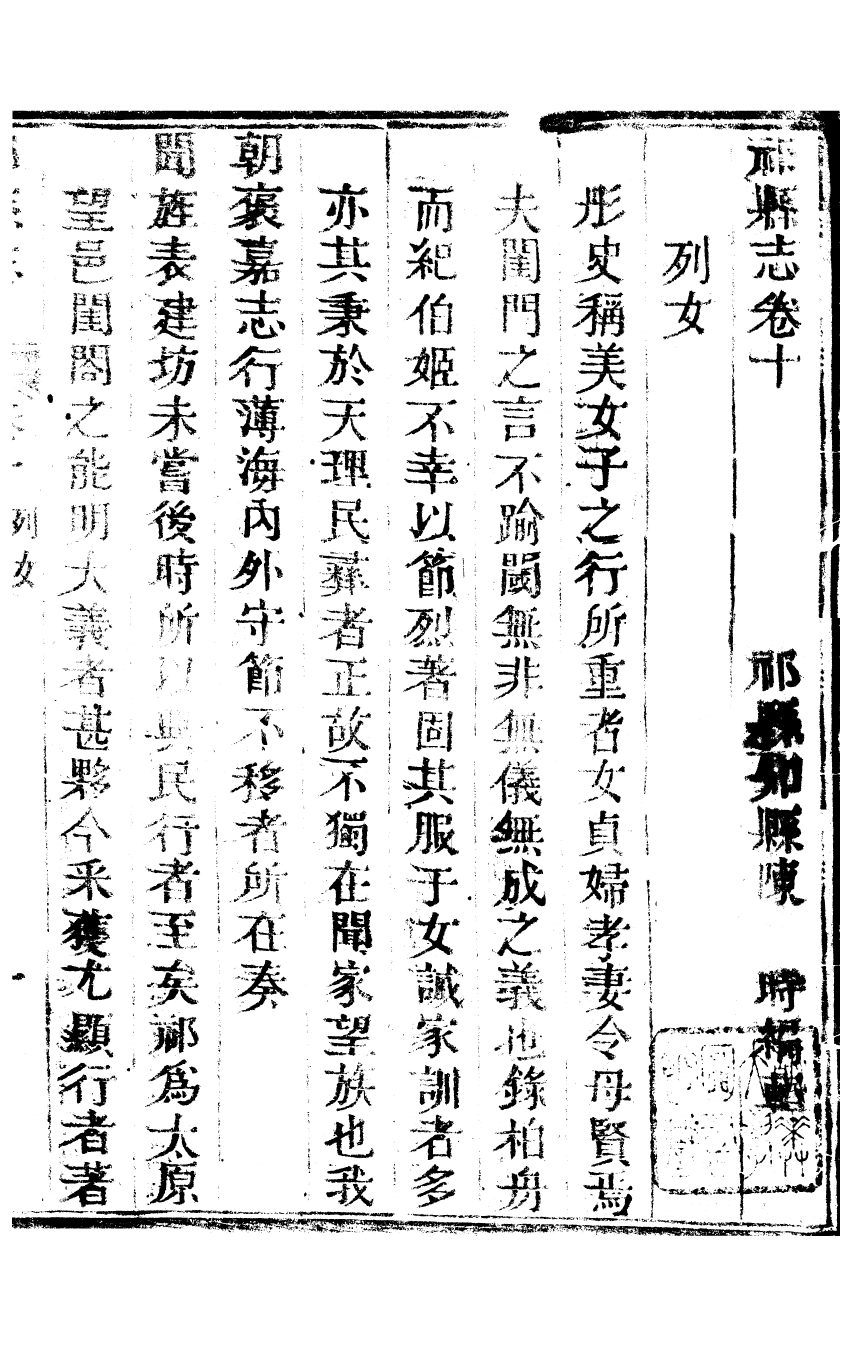 祁縣志卷十
祁縣知縣陳　時編輯
列女
彤史稱美女子之行所重者女貞婦孝妻令母賢焉
夫閨門之言不踰閾無非無儀無成之義也錄柏舟
而紀伯姬不幸以節烈著固其服于女誡家訓者多
亦其秉於天理民彝者正故不獨在聞家望族也我
朝褒嘉志行薄海內外守節不移者所在奏
聞旌表建坊未嘗後時所以興民行者至矣祁爲太原
望邑閨閤之能明大義者甚夥今采獲尤顯行者著
列女